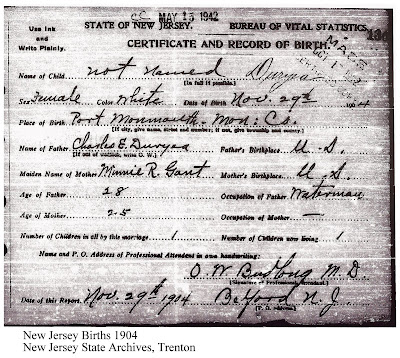 CC MAY 13 1942
Use Ink and Write Plainly.
STATE OF NEW JERSEY. BUREAU OF VITAL STATISTICS
CERTIFICATE AND RECORD OF BIRTH.
Name of Child not named Duryea
[In full if possible.]
Sex Female Color White Date of Birth Nov. 29th 1904
Place of Birth Port Monmouth - Mon: Co.
[If city, give name, street and number; if not, give township and county.]
Name of Father Charles E. Duryea Father's Birthplace U.S.
[If out of wedlock, write O. W.]
Maiden Name of Mother Minnie R. Gant Mother's Birthplace U.S.
Age of Father 28 Occupation of Father Waterman
Age of Mother 25 Occupation of Mother —
Number of Children in all by this marriage 1 Number of Children now living 1
Name and P. O. Address of Professional Attendant in own handwriting:
O W Budlong M.D.
[Signature of Professional Attendant.]
Date of this Report, Nov. 29th 1904 Belford N.J.
[P. O. address.]
New Jersey Births 1904
New Jersey State Archives, Trenton